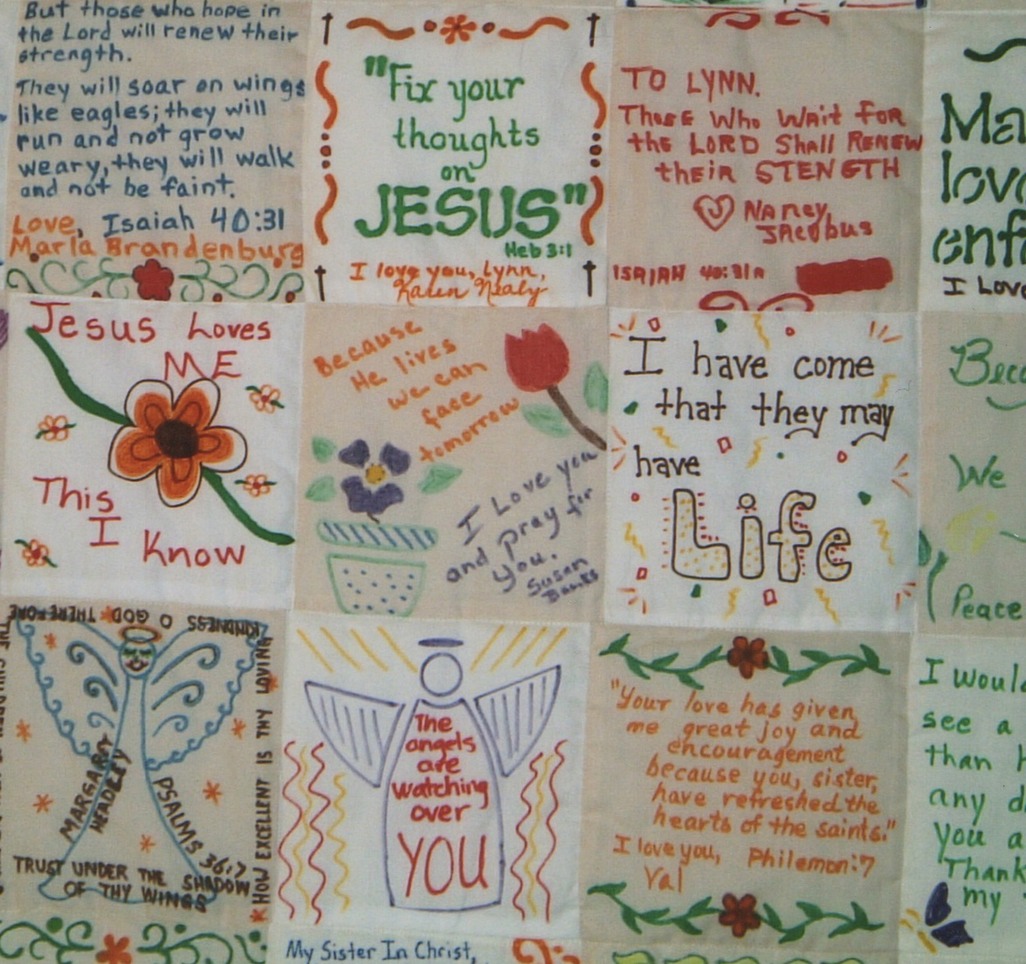 But those who hope in
the Lord will renew their
strength.
They will soar on wings
like eagles; they will
run and not grow
weary, they will walk
and not be faint.
Love, Isaiah 40:31
Marla Brandenburg
"Fix your
thoughts
on
JESUS"
Heb 3:1
I love you, Lynn,
Karen Nealy
TO LYNN.
Those Who Wait For
the LORD Shall RENEW
their STENGTH
Nancy
Jacobus
ISAIAH 40:31A
Ma
love
enf
I Love
Jesus Loves
ME
This
I
Know
Because
He lives
we can
face
tomorrow
I Love you
and pray for
you.
Susan
Banks
I have come
that they may
have
Life
Beca
We
Peace
KINDNESS O GOD THEREFORE
HOW EXCELLENT IS THY LOVING
MARGARY
HEADLEY
PSALMS 36:7
TRUST UNDER THE SHADOW
OF THY WINGS
The
angels
are
watching
over
YOU
"Your love has given
me great joy and
encouragement
because you, sister,
have refreshed the
hearts of the saints."
I love you, Philemon:7
Val
I would
see a
than h
any d
you a
Thank
my
My Sister In Christ,